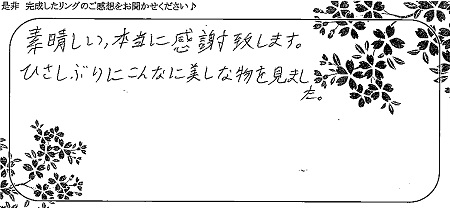 是非 完成したリングのご感想をお聞かせください♪
素晴しい,本当に感謝致します。
ひさしぶりにこんなに美しな物を見まし
た。